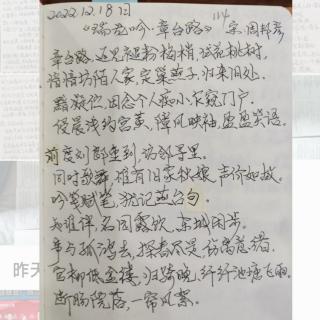 2022.12.18日
114
《瑞龙吟·章台路》 宋.周邦彦
章台路,还见褪粉梅梢,试花桃树,
愔愔坊陌人家,定巢燕子,归来旧处。
黯凝伫,因念个人痴小,乍窥门户。
侵晨浅约宫黄,障风映袖,盈盈笑语。
前度刘郎重到,访邻寻里。
同时歌舞,唯有旧家秋娘,声价如故。
吟笺赋笔,犹记燕台句。
知谁伴,名园露饮,东城闲步。
事与孤鸿去,探春尽是,伤离意绪。
官柳低金缕,归骑晚,纤纤池塘飞雨。
断肠院落,一帘风絮。
昨天